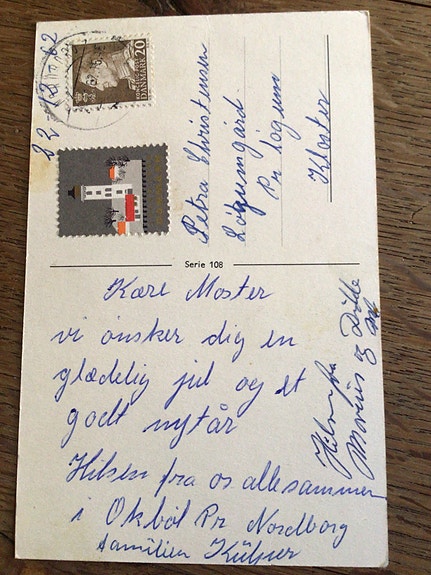 22-12-1962
KONGELIG POST
DANMARK 20
Petra Christensen
Løgumgård
Pr løgum
Kloster
Serie 108
Kære Moster
vi ønsker dig en
glædelig jul og et
godt nytår
Hilsen fra os allesammen
i Okbøl Pr Nordborg
familien
Hilsen fra
Marius og Ditte